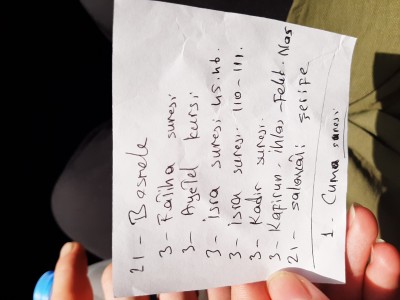 21 - Besmele
3 - Fatiha suresi
3 - Ayetel kursi
3 - isra suresi 45.46.
3 - isra suresi 110-111.
3 - Kadir suresi.
3 - Kafirun - ihlas - Felak. Nas
21 - salavatı şerife
1. Cuma suresi